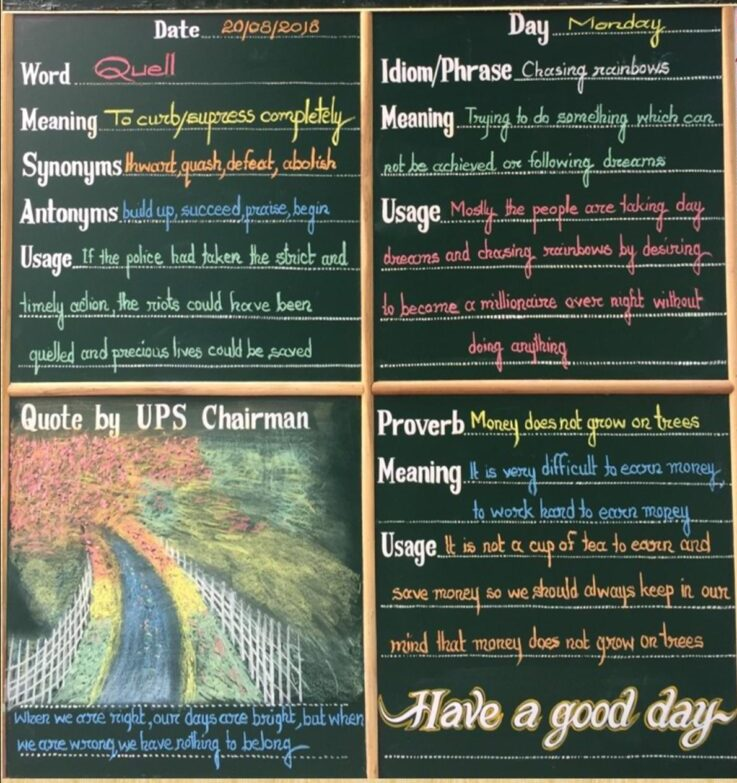 Date 20/08/2018
Word Quell
Meaning To curb/supress completely
Synonyms thwart, quash, defeat, abolish
Antonyms build up, succeed, praise, begin
Usage If the police had taken the strict and
timely action, the riots could have been
quelled and precious lives could be saved
Day Monday
Idiom/Phrase Chasing rainbows
Meaning Trying to do something which can
not be achieved, or following dreams
Usage Mostly the people are taking day
dreams and chasing rainbows by desiring
to become a millionaire over night without
doing anything
Quote by UPS Chairman
When we are right, our days are bright, but when
we are wrong, we have nothing to belong
Proverb Money does not grow on trees
Meaning It is very difficult to earn money,
to work hard to earn money
Usage It is not a cup of tea to earn and
save money so we should always keep in our
mind that money does not grow on trees
Have a good day